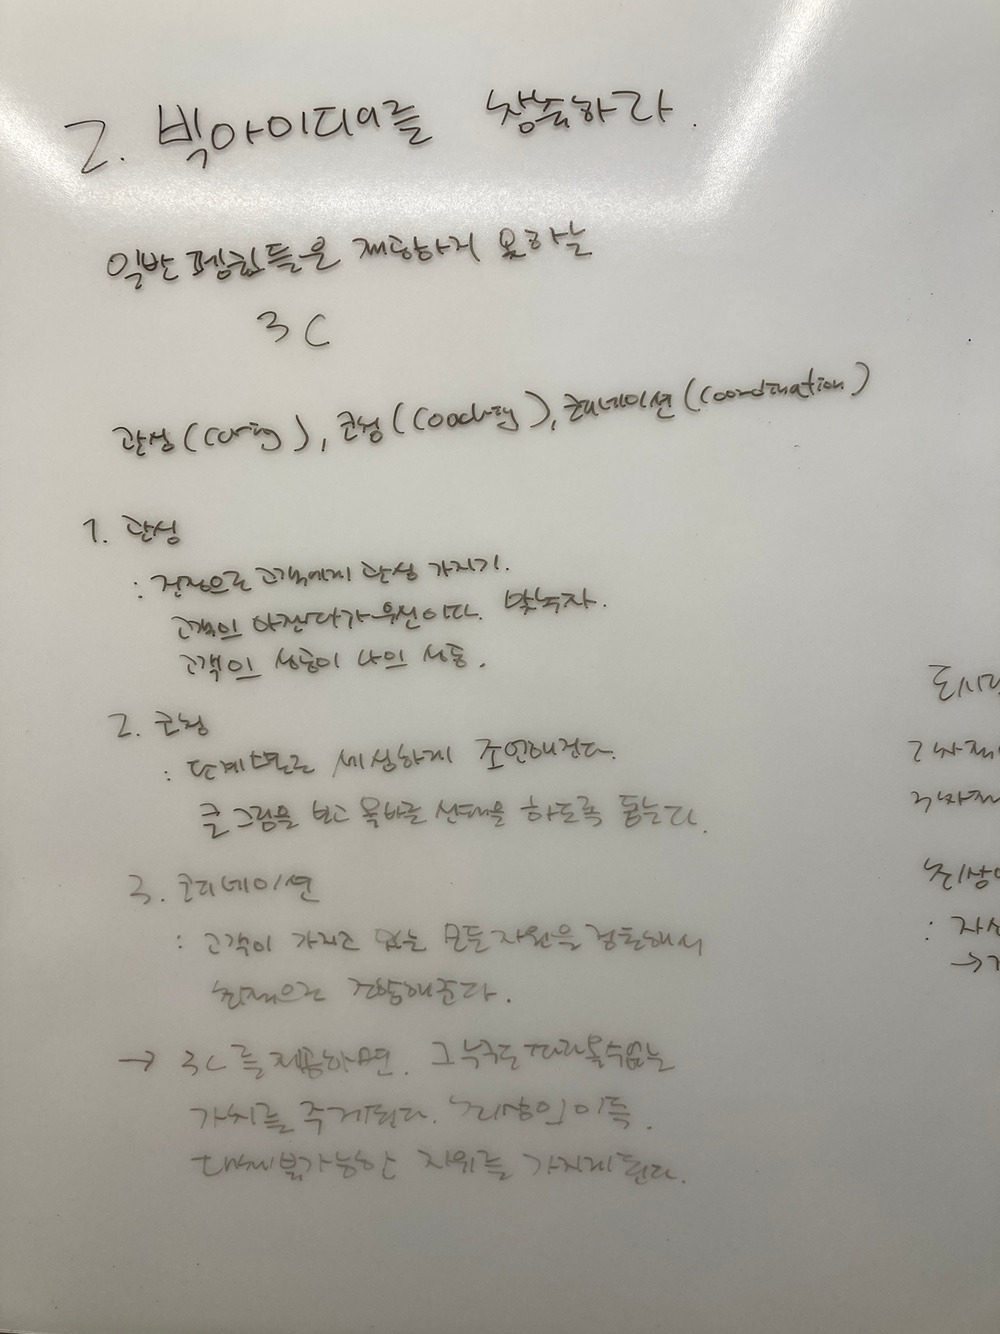 2. 빅아이디어를 창출하라.
일반 펭귄들은 제공하지 못하는
3C
관심(Caring), 코칭(Coaching), 코디네이션(Coordination)
1. 관심
: 진정으로 고객에게 관심 가지기.
고객의 우선이다.
고객의 성공이 나의 성공.
2. 코칭
: 단계별로 세심하게 조언해준다.
큰 그림을 보고 올바른 선택을 하도록 돕는다.
3. 코디네이션
: 고객이 가지고 있는 모든 자원을 해서
해준다.
→ 3C를 제공하면. 그 누구도 따라올수없는
가치를 주게된다. 그 이상의 이득.
대체불가능한 지위를 가지게된다.